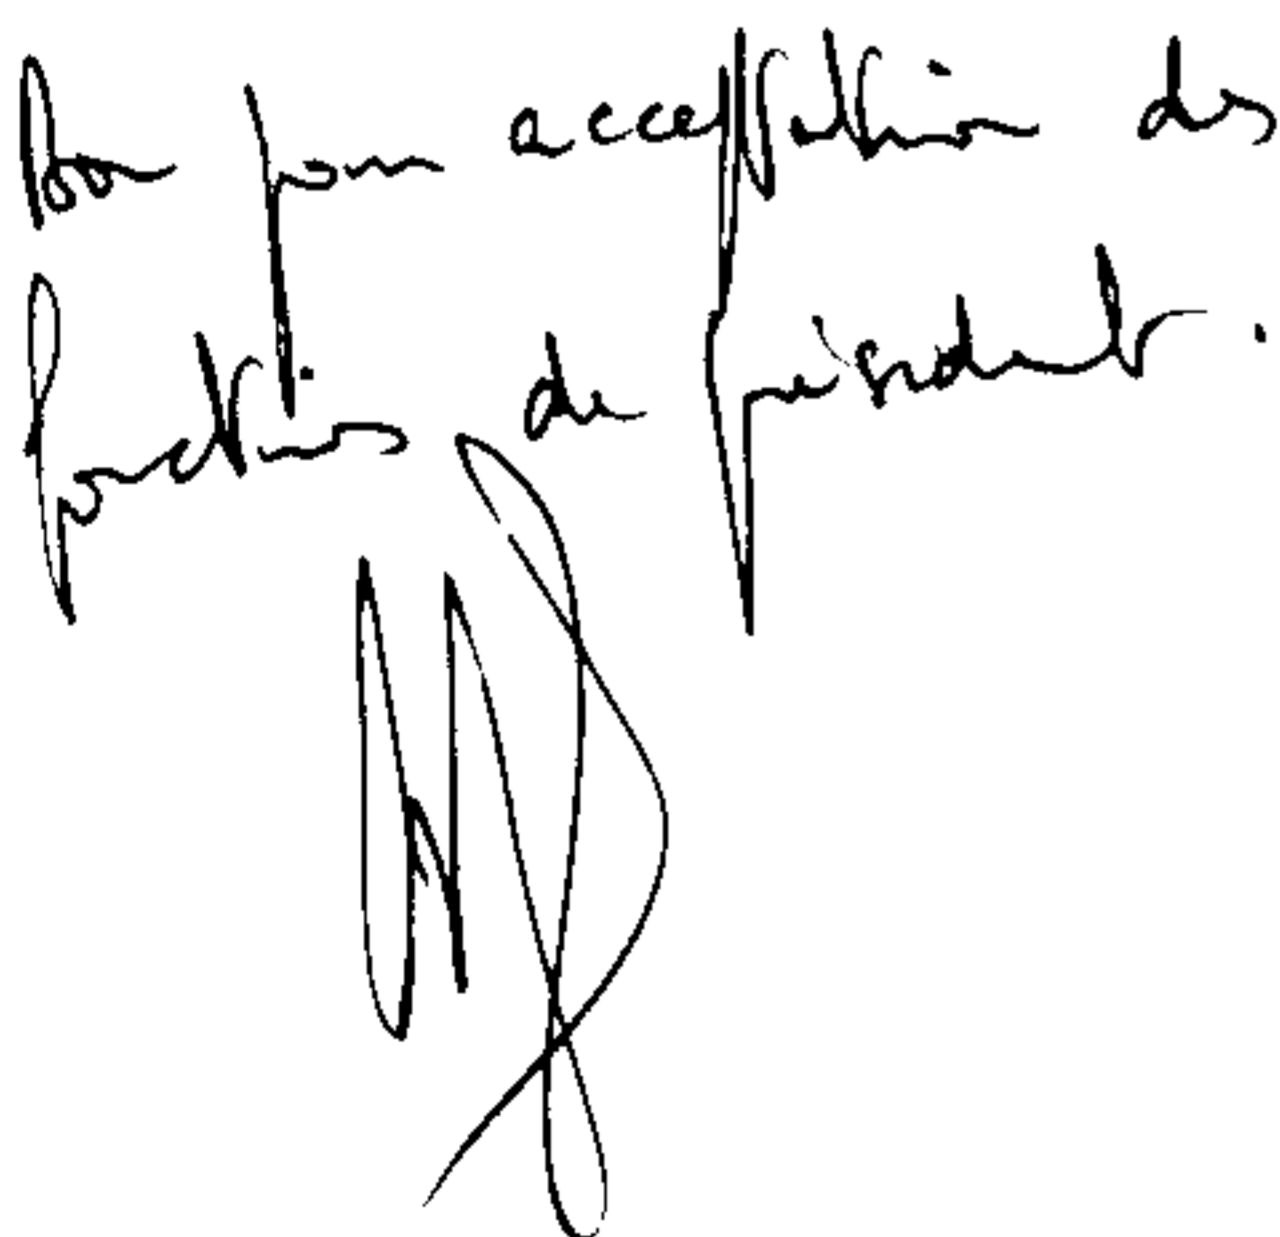 Bon pour acceptation des
fonctions de président.